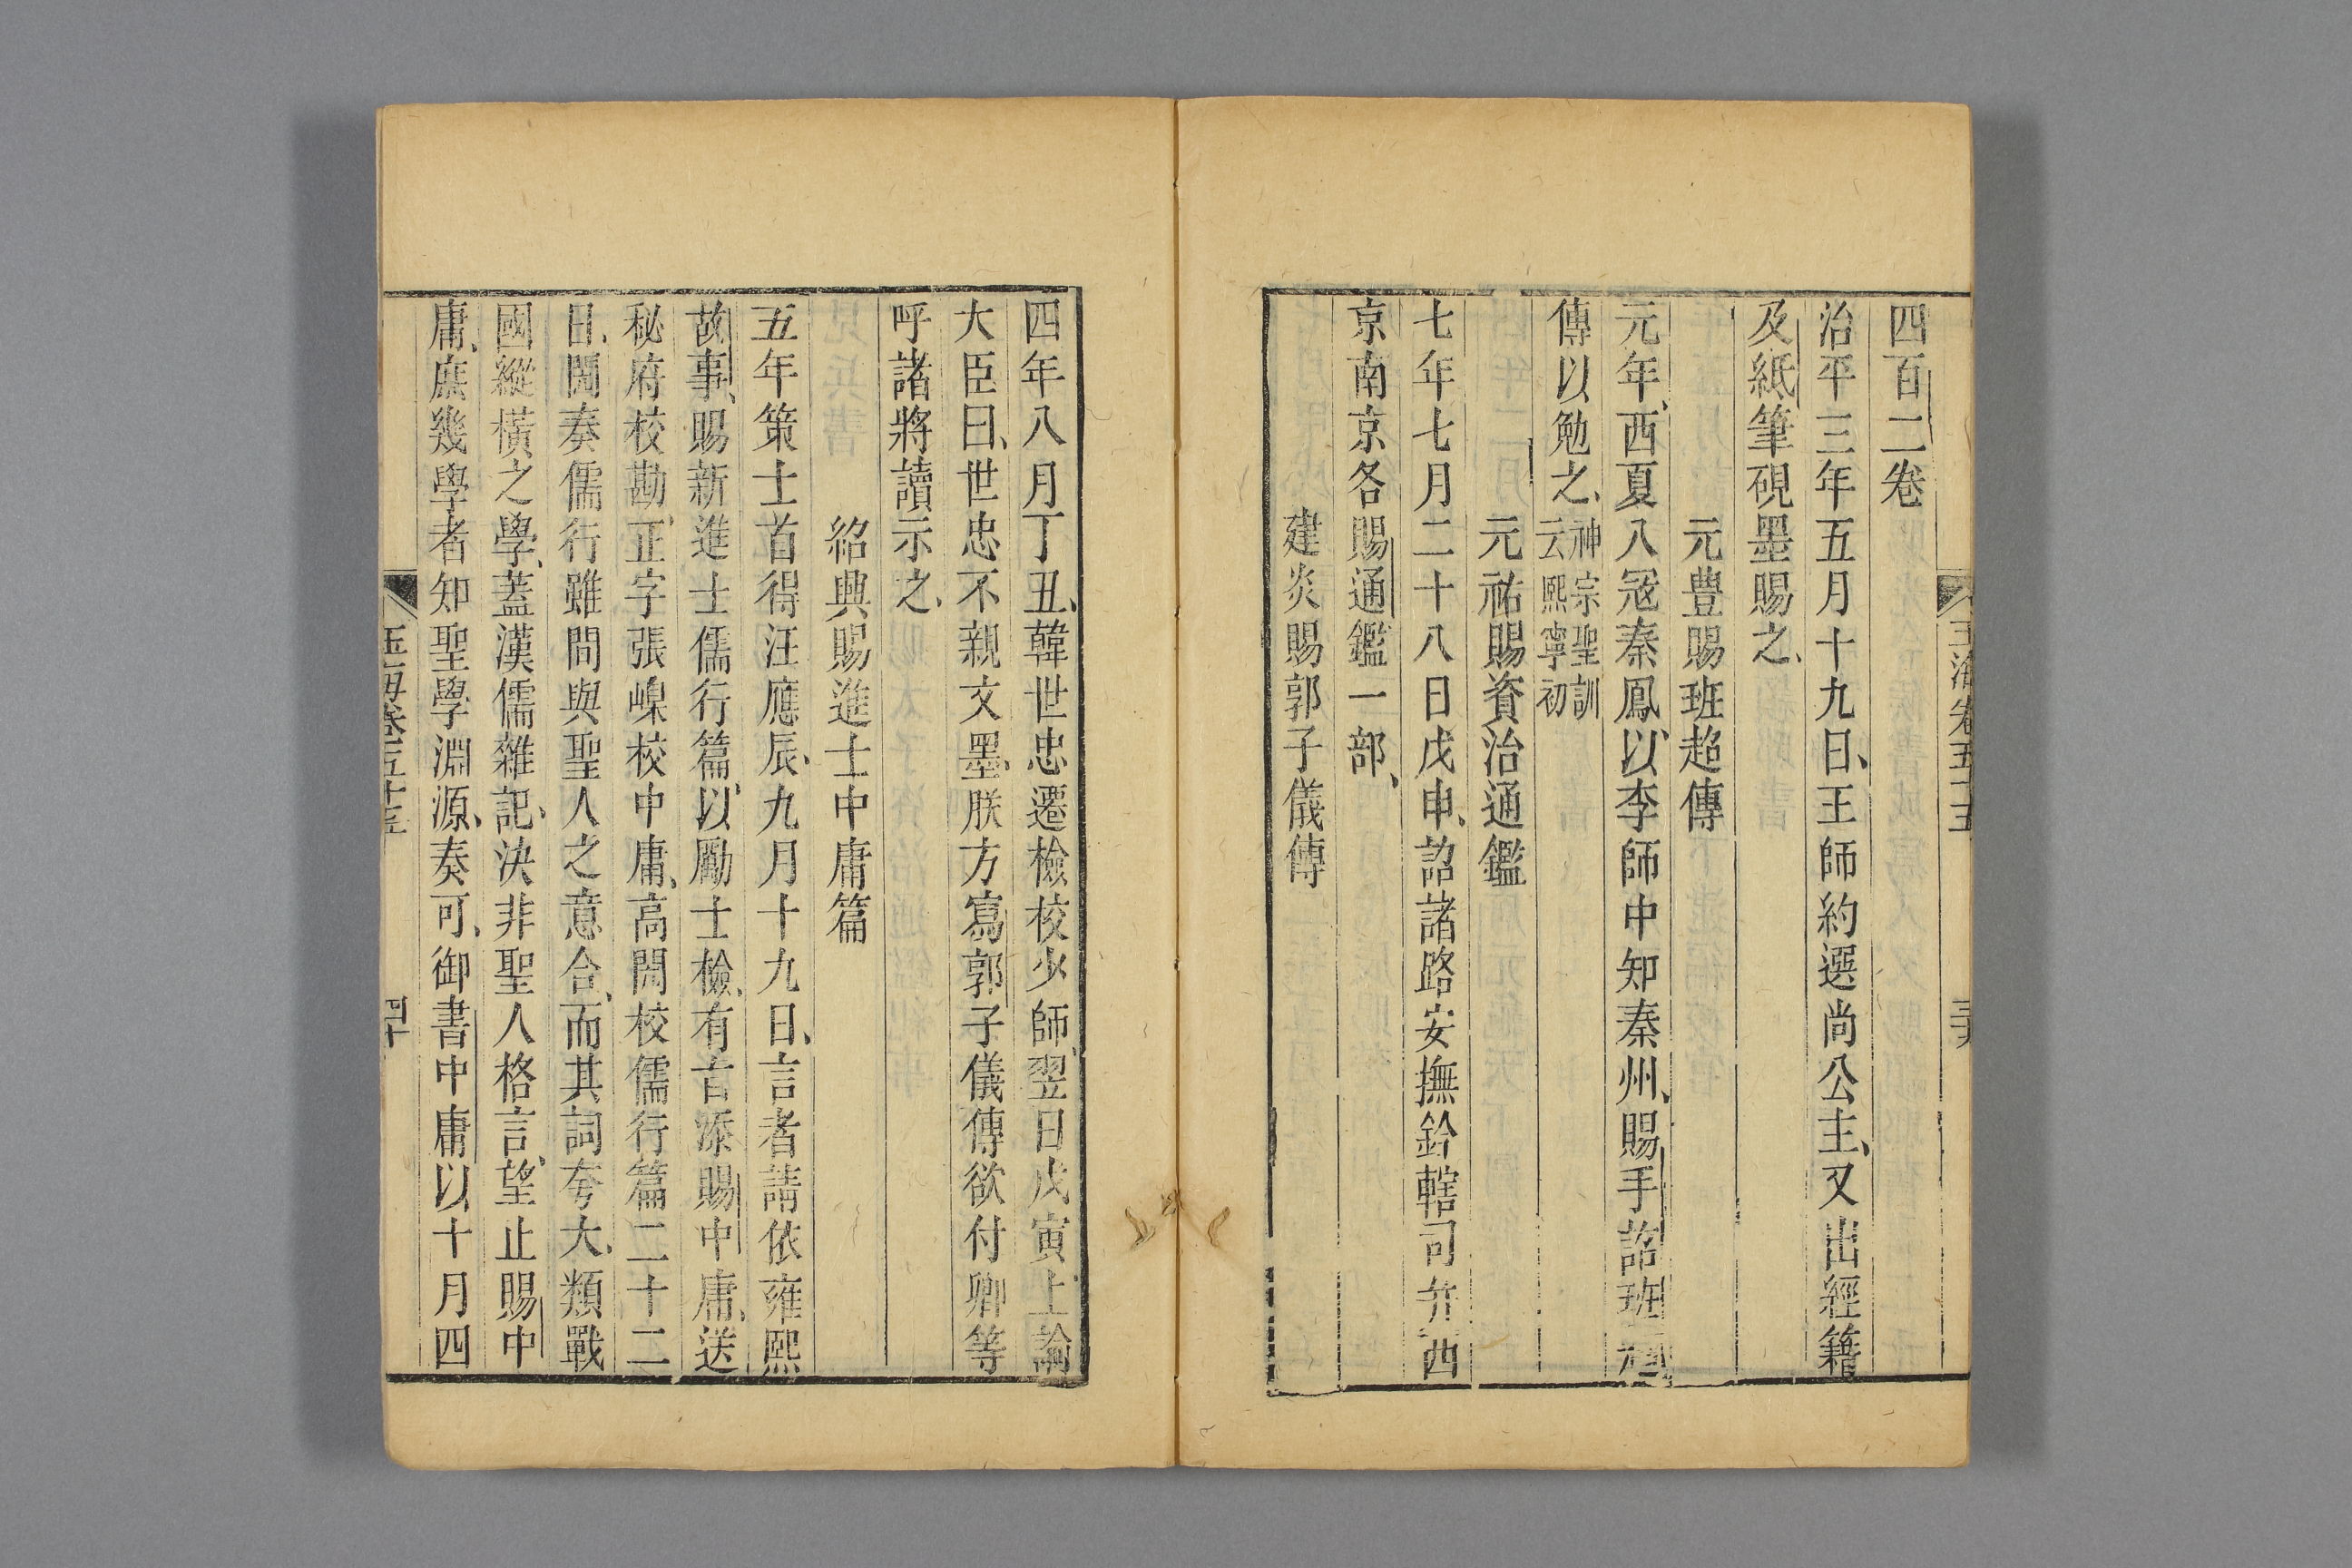 玉海卷五十五
四百二卷
治平三年五月十九日、王師約選尚公主、又出經籍
及紙筆硯墨賜之、
元豊賜班超傳
元年、西夏入冦秦鳳、以李師中知秦州、賜手詔班超
傳以勉之、神宗聖訓
云熙寧初
元祐賜資治通鑑
七年七月二十八日戊申、詔諸路安撫鈐轄司并西
京南京各賜通鑑一部、
建炎賜郭子儀傳
四年八月丁丑、韓世忠遷檢校少師、翌日戊寅上諭
大臣曰、世忠不親文墨、朕方寫郭子儀傳欲付卿等
呼諸將讀示之、
紹興賜進士中庸篇
五年策士首得汪應辰、九月十九日、言者請依雍熙
故事、賜新進士儒行篇、以勵士檢、有旨添賜中庸、送
秘府校勘、正字張嵲校中庸、高閌校儒行篇二十二
日、閌奏儒行雖問與聖人之意合、而其詞夸大、類戰
國縱橫之學、蓋漢儒雜記、決非聖人格言、望止賜中
庸、庶幾學者知聖學淵源、奏可、御書中庸以十月四
玉海卷五十五
四十